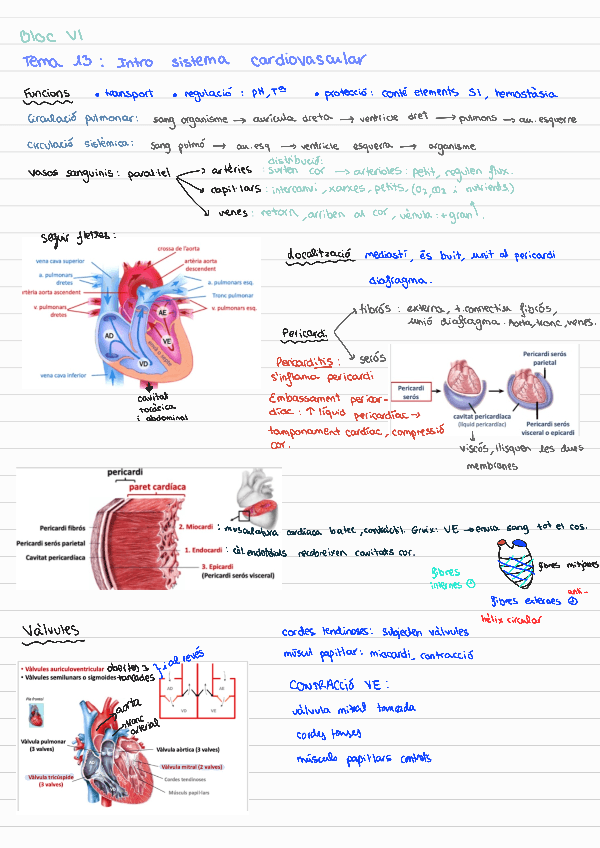 Bloc VI
Tema 13: Intro sistema cardiovascular
Funcions • transport • regulació: pH, Tª • protecció: conté elements SI, hemostàsia
Circulació pulmonar: sang organisme → aurícula dreta → ventricle dret → pulmons → au. esquerre
Circulació sistèmica: sang pulmó → au. esq → ventricle esquerra → organisme
distribució:
vasos sanguinis: paral·lel → artèries: surten cor → arterioles: petit, regulen flux.
→ capil·lars: intercanvi, xarxes, petits, (O2, CO2 i nutrients)
→ venes: retorn, arriben al cor, vènula: + gran↑.
Seguir fletxes:
crossa de l'aorta
vena cava superior
artèria aorta descendent
a. pulmonars dretes
a. pulmonars esq.
artèria aorta ascendent
Tronc pulmonar
v. pulmonars dretes
v. pulmonars esq.
AE
AD
VE
VD
vena cava inferior
cavitat
toràcica
i abdominal
Localització mediastí, és buit, unit al pericardi
diafragma.
Pericardi
fibrós: externa, + connectiu fibrós,
unió diafragma. Aorta, tronc, venes.
serós
Pericarditis:
s'inflama pericardi
Embassament pericar-
díac: ↑ líquid pericardíac →
tamponament cardíac, compressió
cor.
Pericardi serós parietal
Pericardi serós
cavitat pericardíaca
(líquid pericardíac)
Pericardi serós visceral o epicardi
viscós, llisquen les dues
membranes
pericardi
paret cardíaca
Pericardi fibrós
Pericardi serós parietal
Cavitat pericardíaca
2. Miocardi: musculatura cardíaca batec, contràctil. Gruix: VE → envia sang tot el cos.
1. Endocardi: cèl. endotelials recobreixen cavitats cor.
3. Epicardi
(Pericardi serós visceral)
fibres
internes
fibres mitjanes
fibres externes
anti-
hèlix circular
Vàlvules
• Vàlvules auriculoventricular obertes
• Vàlvules semilunars o sigmoides tancades
i al revés
AD
AE
VD
VE
aorta
tronc
arterial
Vàlvula pulmonar
(3 valves)
Vàlvula aòrtica (3 valves)
Vàlvula mitral (2 valves)
Vàlvula tricúspide
(3 valves)
Cordes tendinoses
Músculs papil·lars
cordes tendinoses: subjecten vàlvules
múscul papil·lar: miocardi, contracció
CONTRACCIÓ VE:
vàlvula mitral tancada
cordes tenses
músculs papil·lars contrets